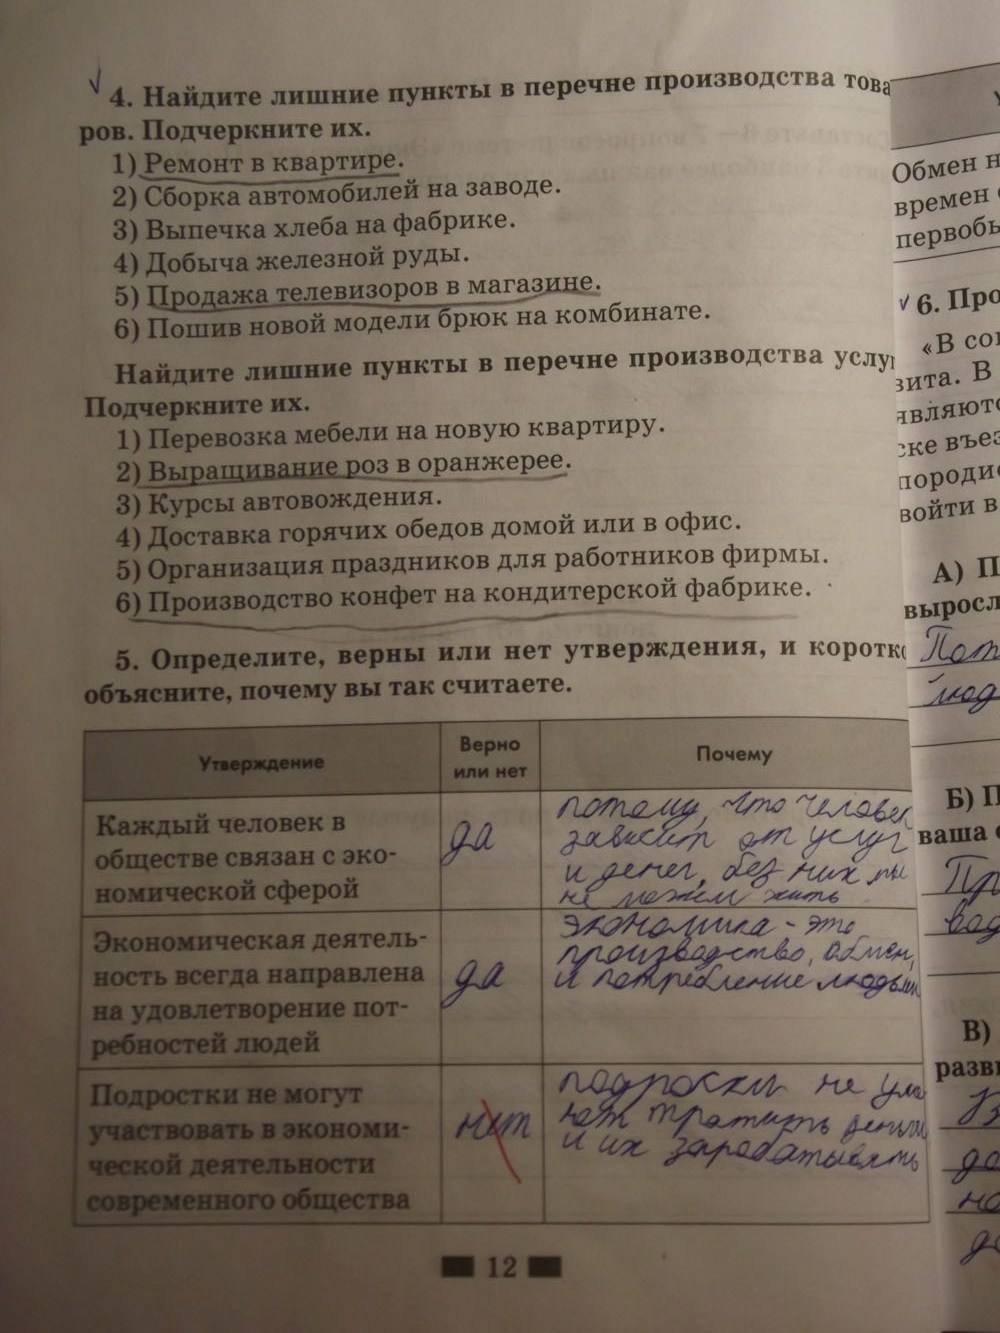 4. Найдите лишние пункты в перечне производства това
ров. Подчеркните их.
1) Ремонт в квартире.
2) Сборка автомобилей на заводе.
3) Выпечка хлеба на фабрике.
4) Добыча железной руды.
5) Продажа телевизоров в магазине.
6) Пошив новой модели брюк на комбинате.
Найдите лишние пункты в перечне производства услуг
Подчеркните их.
1) Перевозка мебели на новую квартиру.
2) Выращивание роз в оранжерее.
3) Курсы автовождения.
4) Доставка горячих обедов домой или в офис.
5) Организация праздников для работников фирмы.
6) Производство конфет на кондитерской фабрике.
5. Определите, верны или нет утверждения, и коротко
объясните, почему вы так считаете.
Утверждение
Верно
или нет
Почему
Каждый человек в
обществе связан с эко-
номической сферой
да
потому, что человек
зависит от услуг
и денег, без них мы
не можем жить
Экономическая деятель-
ность всегда направлена
на удовлетворение пот-
ребностей людей
да
экономика - это
производство, обмен,
и потребление людьми
Подростки не могут
участвовать в экономи-
ческой деятельности
современного общества
нет
подроски не уме
ют тратить деньги
и их зарабатывать
12
Обмен н
времен
первобы
6. Про
«В со
вита. В
являютс
ске въез
породис
войти в
А) П
выросл
Пот
люд
Б) П
ваша
Пр
вод
В)
разви
до
но
де